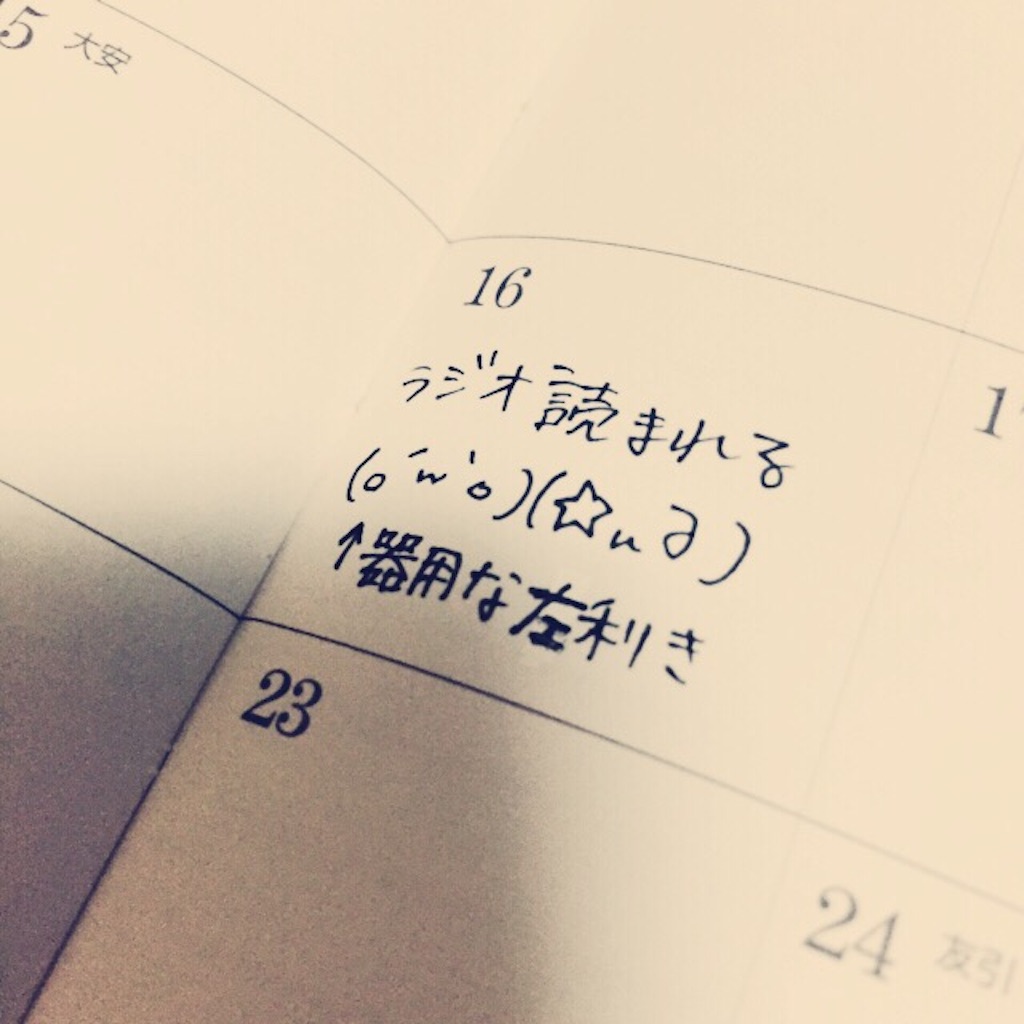 5 大安
16
ラジオ読まれる
(o´ω`o)(☆ω∂)
↑器用な左利き
1
23
24 友引